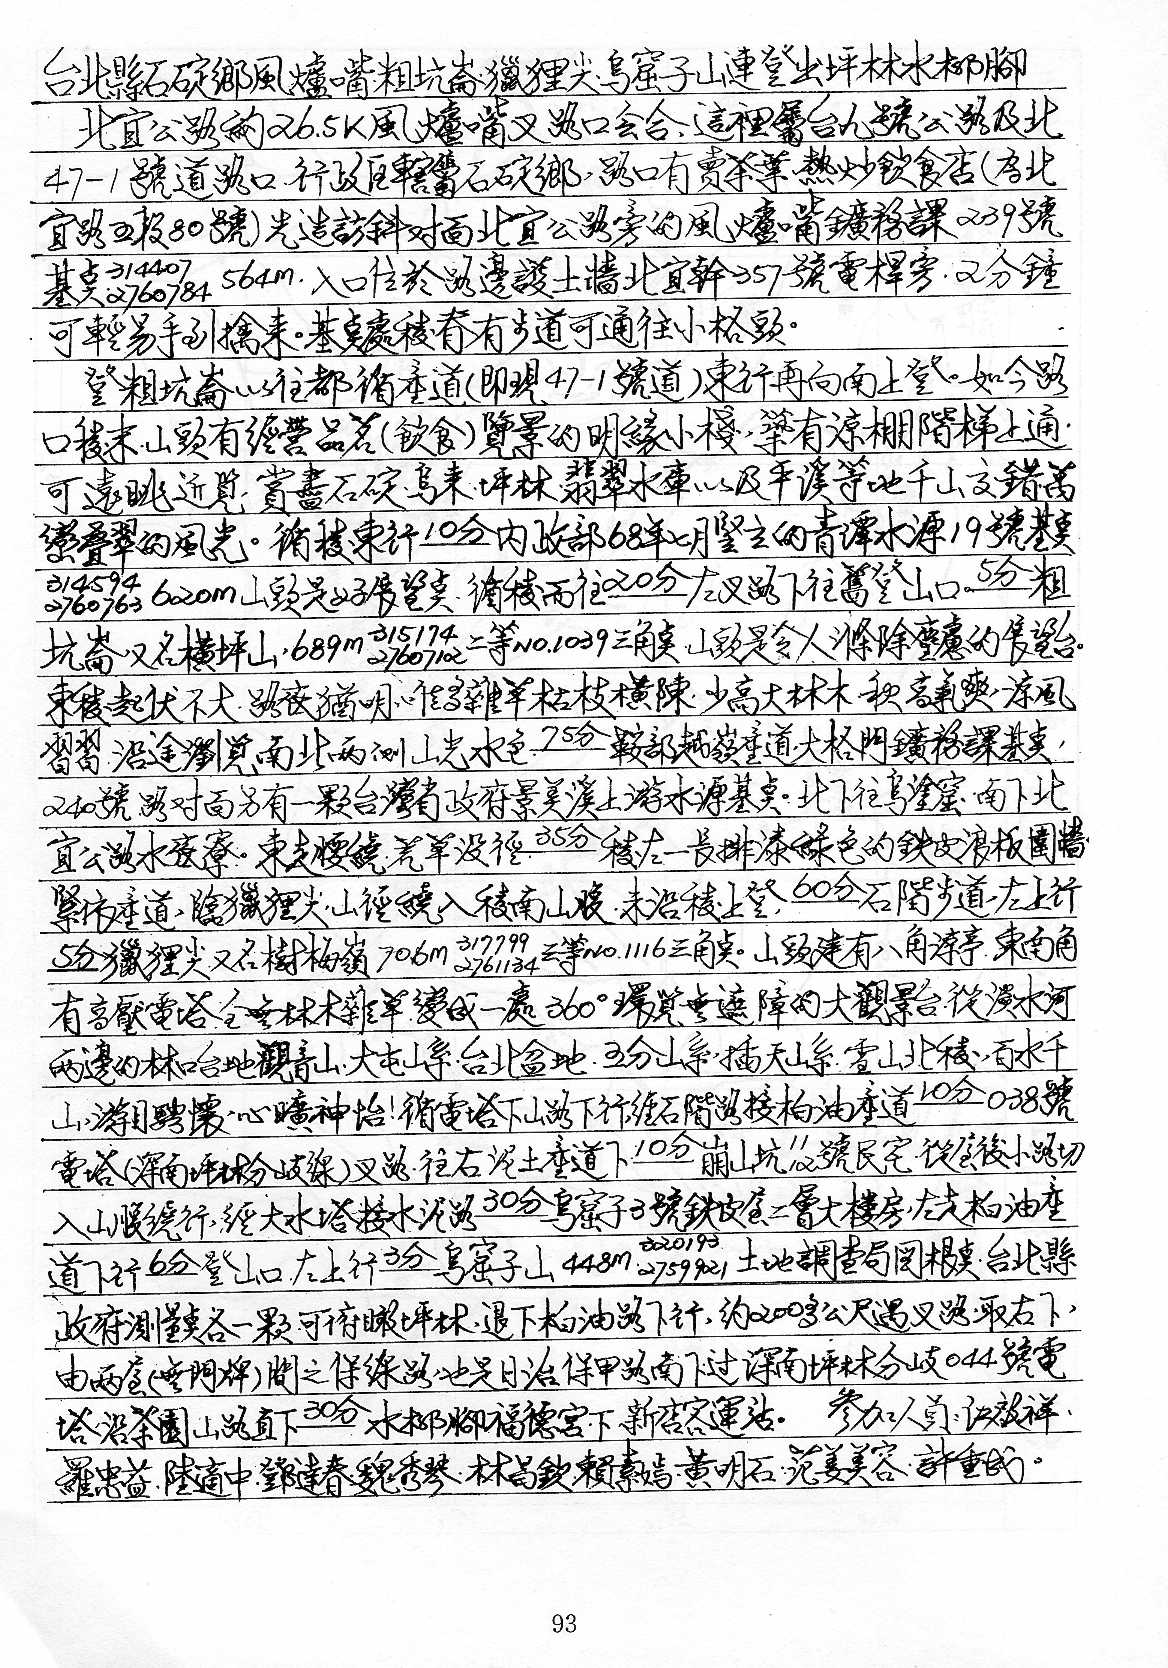 台北縣石碇鄉風爐嘴粗坑崙.獵狸尖.烏窟子山連登出坪林水柳腳
北宜公路約26.5K風爐嘴叉路口会合、這裡屬台九號公路及北
47-1號道路口.行政区轄屬石碇鄉,路口有賣茶葉.熱炒飲食店(為北
宜路五段80號)先造訪斜对面北宜公路旁的風爐嘴鑛務課239號
基点314407 2760784 564m.入口位於路邊護土牆北宜幹357號電桿旁.2分鐘
可輕易手到擒来。基点處稜脊有步道可通往小格頭。
登粗坑崙以往都循產道(即現47-1號道)東行再向南上登。如今路
口稜末.山頭有經營品茗(飲食)覽景的明緣小棧,築有涼棚階梯上通.
可遠眺近覧,賞盡石碇.烏来.坪林.翡翠水庫以及平溪等地千山交錯萬
巒疊翠的風光。循稜東行10分內政部68年七月豎立的青潭水源19號基点
314594 2760763 620m山頭是好展望点.循稜而往20分左叉路下往舊登山口。5分粗
坑崙又名橫坪山,689m 315174 2760702二等NO.1039三角点.山頭是令人滌除塵慮的展望台。
東稜起伏不大.路痕猶明,惟多雜草枯枝橫陳.少高大林木.秋高氣爽,涼風
習習.沿途瀏覧南北兩側山光水色75分鞍部越嶺產道.大格門鑛務課基点,
240號路对面另有一顆台灣省政府景美溪上游水源基点。北下往烏塗窟.南下北
宜公路水底寮。東走腰繞.荒草没徑.35分稜左一長排漆綠色的鉄皮浪板圍牆
緊依產道,臨獵狸尖,山徑繞入稜南山腹.未沿稜上登,60分石階步道,左上行
5分獵狸尖又名樹梅嶺706m 317799 2761134三等NO.1116三角点。山頭建有八角涼亭.東南角
有高壓電塔.全無林木雜草.變成一處360°環覧無遮障的大觀景台.從淡水河
兩邊的林口台地觀音山.大屯山系.台北盆地.五分山系,插天山系.雪山北稜,百水千
山,游目騁懷,心曠神怡!循電塔下山路下行經石階路接柏油產道10分038號
電塔(深南坪林分歧線)叉路.往右泥土產道下10分崩山坑12號民宅.從屋後小路切
入山腹繞行,經大水塔接水泥路30分烏窟子3號鉄皮屋二層大樓房,左走柏油產
道下行6分登山口.左上行3分烏窟子山448m 320193 2759921土地調查局図根点.台北縣
政府測量点各一顆.可俯瞰坪林.退下柏油路下行,約200多公尺遇叉路.取右下,
由兩屋(無門牌)間之保線路,也是日治保甲路南下过深南坪林分歧044號電
塔.沿茶園山路直下30分水柳腳福德宮下新店客運站。 參加人員:
羅忠益.陸適中.鄧達春.魏秀琴.林昌欽.賴素嫣.黃明石.范姜美容.許重成。
93